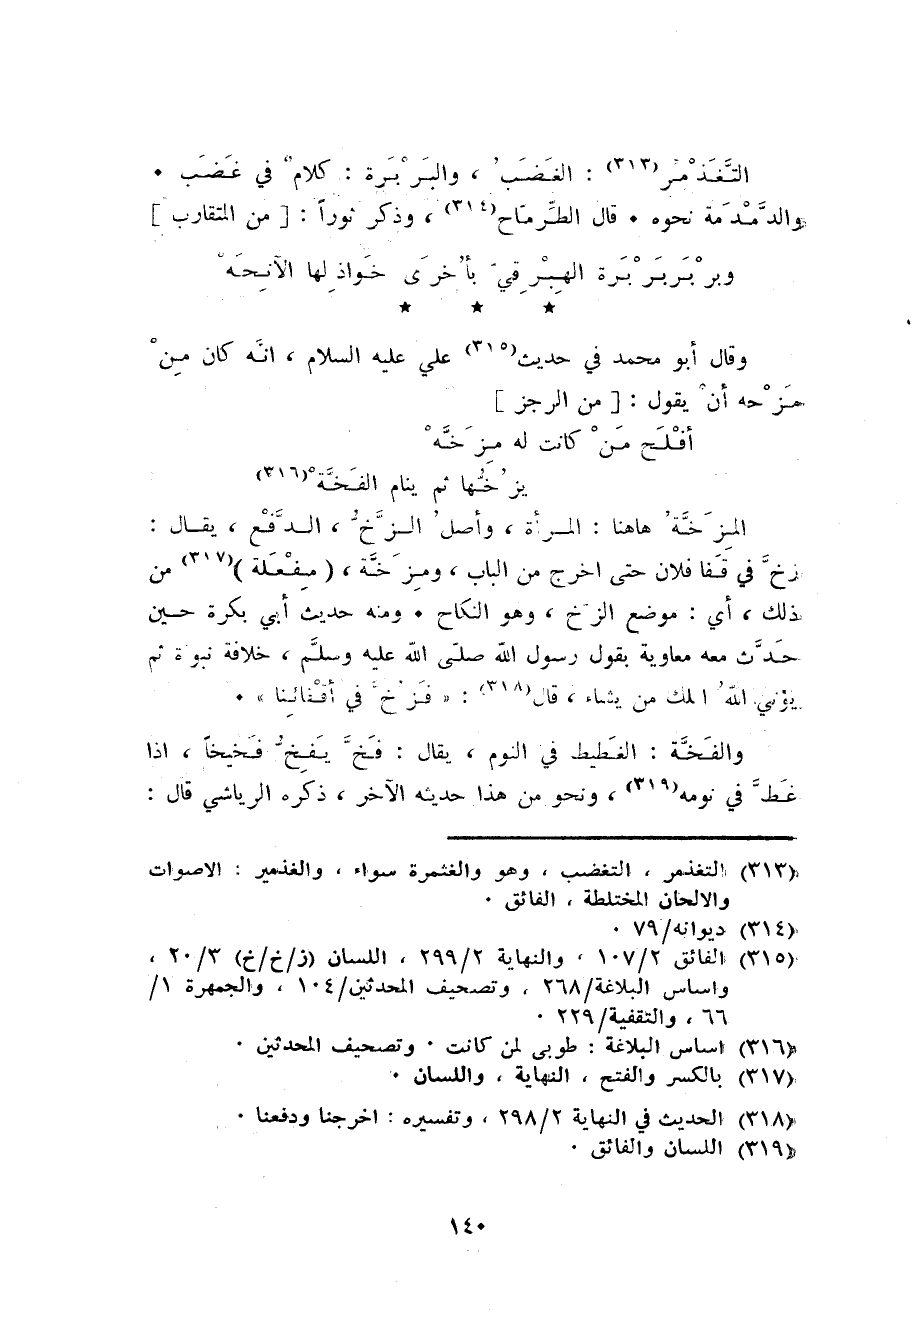 التَّغَذْمُر(٣١٣) : الغَضَبُ ، والبَرْبَرة : كلامٌ في غَضَب ٠
والدَّمْدَمة نحوه ٠ قال الطِّرِمّاح(٣١٤) ، وذكر ثوراً : [ من المتقارب ]
وبرْبَرَ بَرْبَرة الهِبْرِقيّ بأُخرَى خَواذِلها الآنِحَهْ
★ ★ ★
وقال أبو محمد في حديث(٣١٥) علي عليه السلام ، انَّه كان مِنْ
مَزْحه أنْ يقول : [ من الرجز ]
أفْلَح مَنْ كانت له مِزَخَّهْ
يزُخُّها ثم ينام الفَخَّهْ(٣١٦)
المِزَخَّةُ هاهنا : المرأة ، وأصلُ الزَّخُّ ، الدَّفْع ، يقال :
زخَّ في قَفا فلان حتى اخرج من الباب ، ومِزَخَّة ، ( مِفْعَلة )(٣١٧) من
ذلك ، أي : موضع الزخّ ، وهو النكاح ٠ ومنه حديث أبي بكرة حين
حَدَّث معه معاوية بقول رسول الله صلّى الله عليه وسلَّم ، خلافة نبوة ثم
يؤتي اللهُ الملك من يشاء ، قال(٣١٨) : « فَزُخَّ في أقْفائنا » ٠
والفَخَّة : الغَطيط في النوم ، يقال : فَخَّ يَفِخُّ فَخيخاً ، اذا
غَطَّ في نومه(٣١٩) ، ونحو من هذا حديثه الآخر ، ذكره الرياشي قال :
(٣١٣) التغذمر ، التغضب ، وهو والغثمرة سواء ، والغذمير : الاصوات
والالحان المختلطة ، الفائق ٠
(٣١٤) ديوانه/٧٩ ٠
(٣١٥) الفائق ١٠٧/٢ ، والنهاية ٢٩٩/٢ ، اللسان (ز/خ/خ) ٢٠/٣ ،
واساس البلاغة/٢٦٨ ، وتصحيف المحدثين/١٠٤ ، والجمهرة ١/
٦٦ ، والتقفية/٢٢٩ ٠
(٣١٦) اساس البلاغة : طوبى لمن كانت ٠ وتصحيف المحدثين ٠
(٣١٧) بالكسر والفتح ، النهاية ، واللسان ٠
(٣١٨) الحديث في النهاية ٢٩٨/٢ ، وتفسيره : اخرجنا ودفعنا ٠
(٣١٩) اللسان والفائق ٠
١٤٠